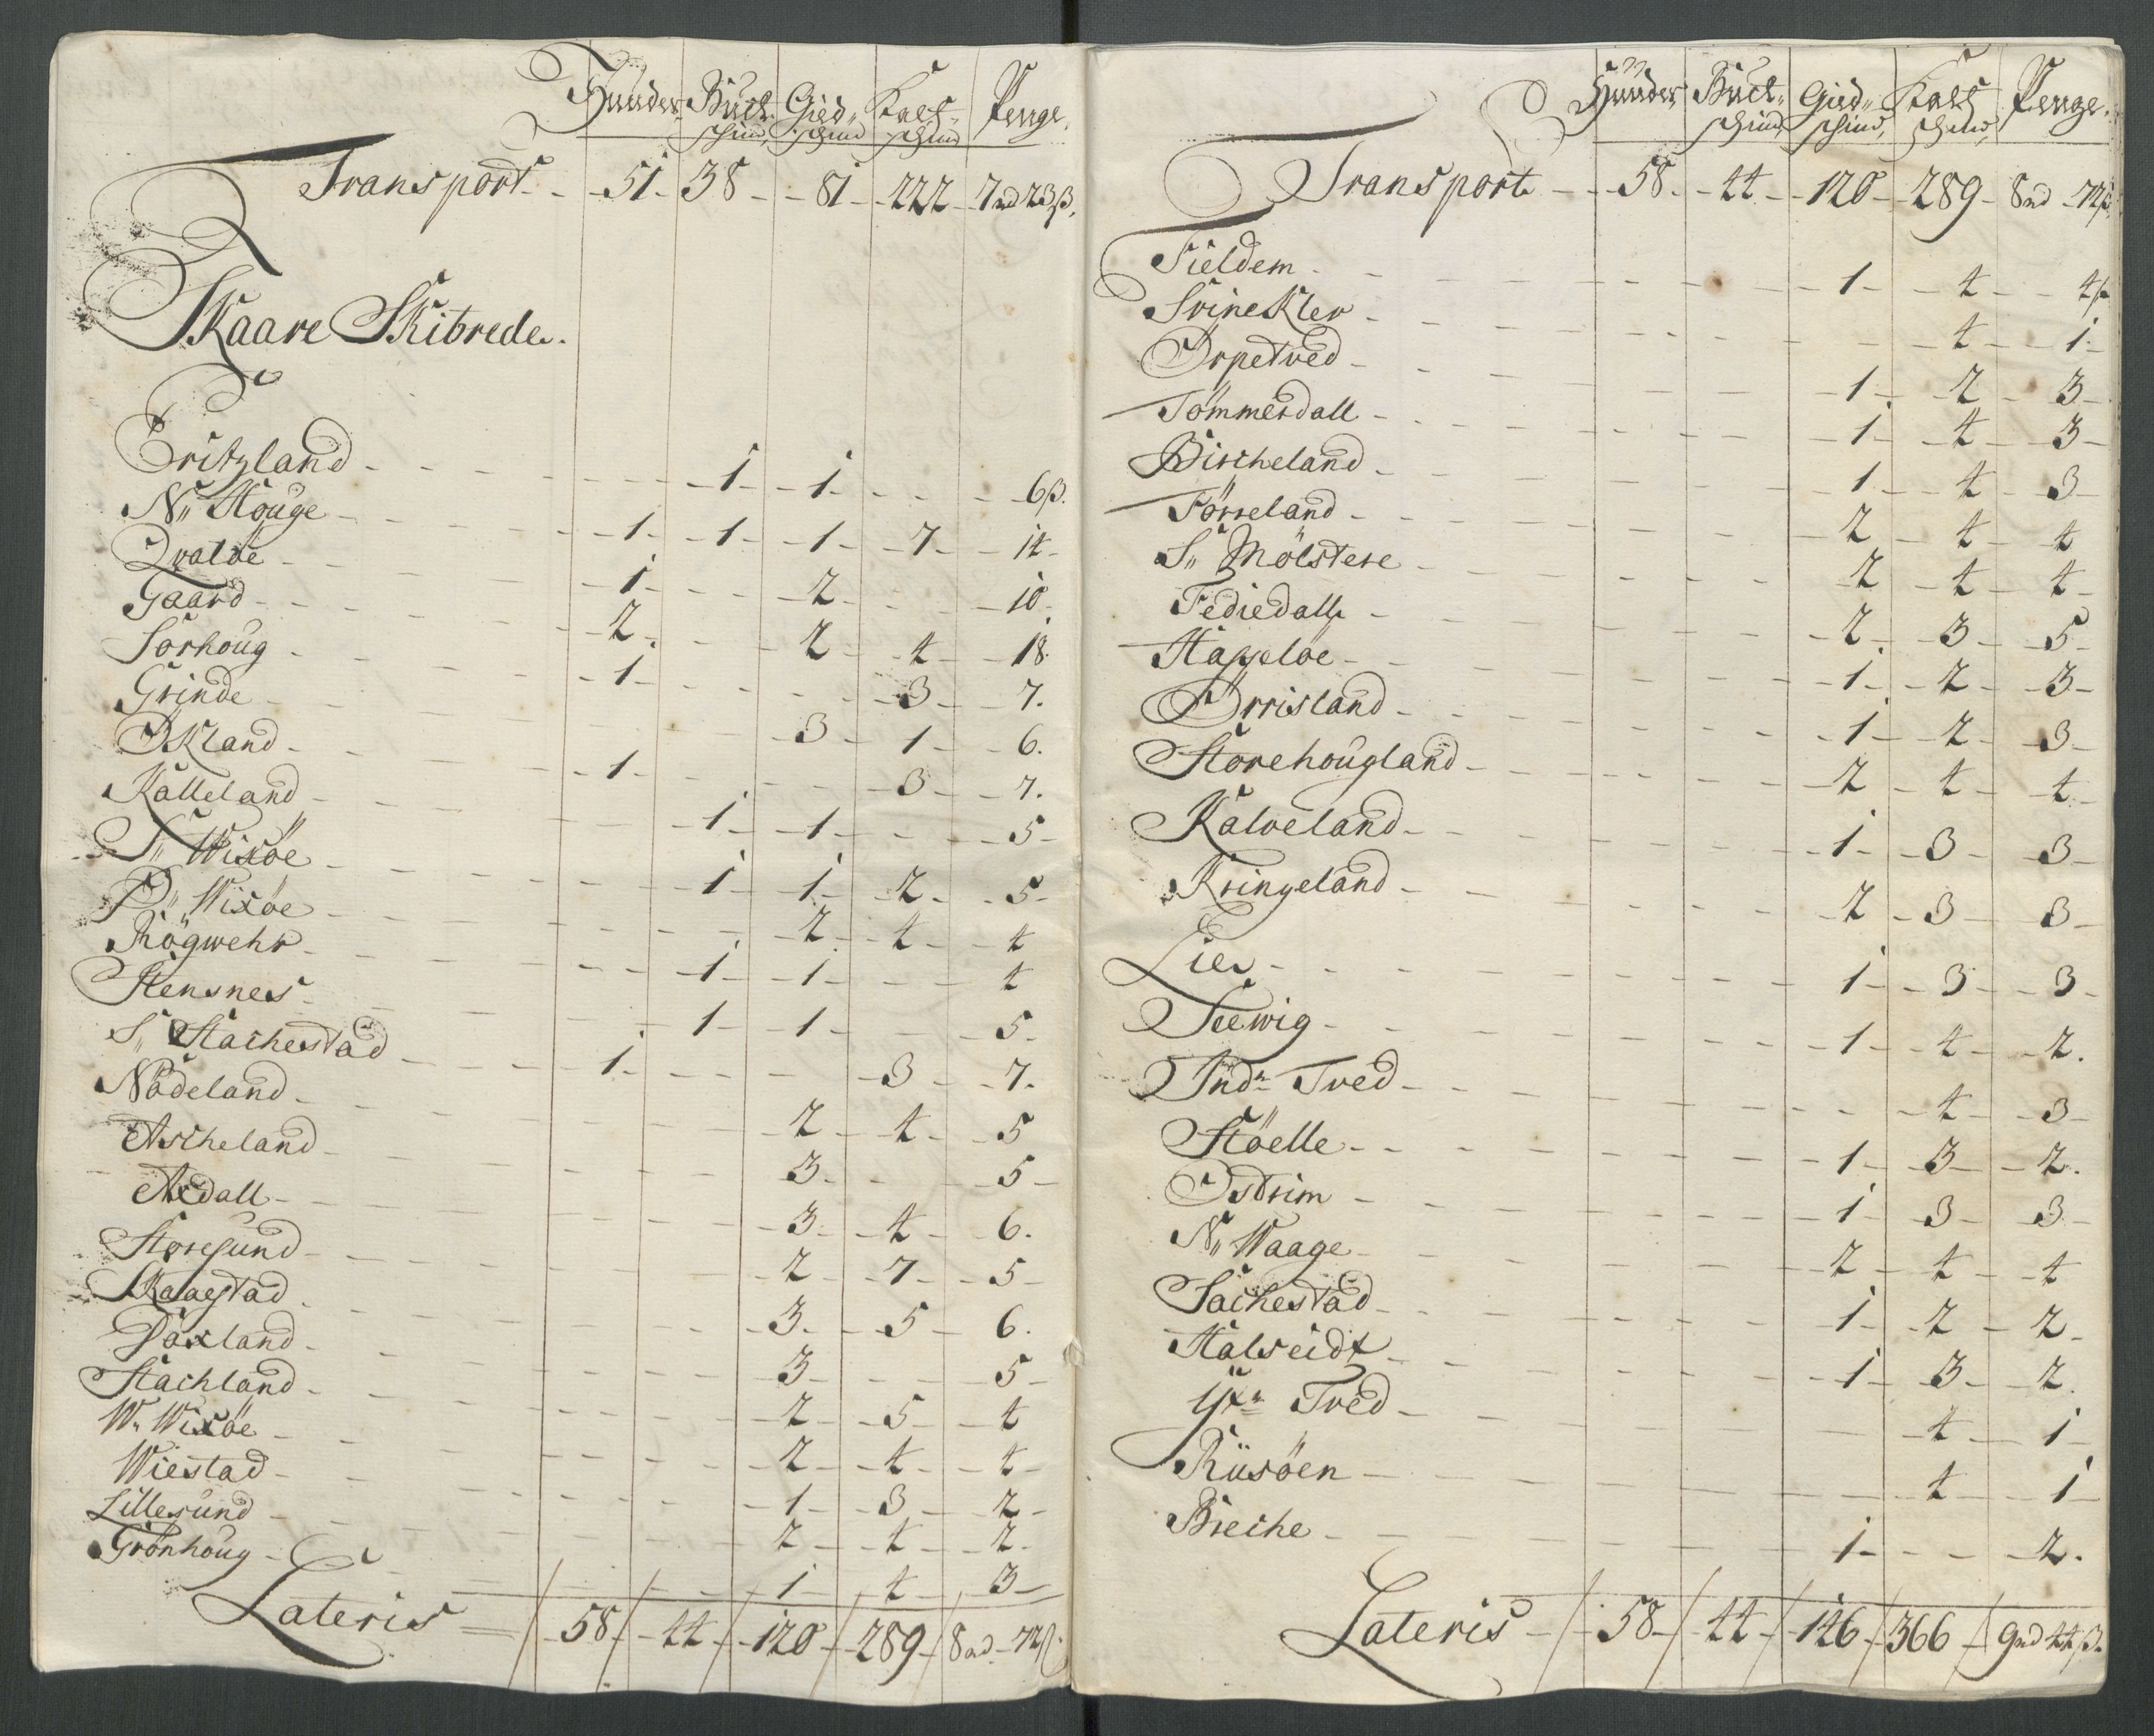 Huuder Buck„ Gied„ Kalf„ Penge.
schind, schind schind
Transport 51 38 81 222 7 rd 23 β.
Skaare Skibrede.
Fritzland 1 1 6 β.
N„ Houge 1 1 1 7 14
Qvaløe 1 2 10
Gaard 2 2 4 18.
Sörhoug 1 3 7.
Grinde 3 1 6.
ÖKland 1 3 7.
Kalleland 1 1 5
S„ Wixöe 1 1 2 5
Ö„ Wixöe 2 4 4
Rögwehr 1 1 4
Stensnes 1 1 5
S„ Stachestad 1 3 7.
Nödeland 2 4 5
Ascheland 3 5
Axdall 3 4 6.
Storesund 2 7 5
Skaaestad 3 5 6.
Döxland 3 5
Stachland 2 5 4
W„ Wixöe 2 4 4
Wiestad 1 3 2
Lillesund 2 4 2
Grönhoug 1 4 3
Lateris 58 44 120 289 8 rd 72 β.
Huuder Buck„ Gied„ Kalf Penge.
schind, schind, schind,
Transport 58 44 120 289 8 rd 72 β
Fieldem 1 4 4 β
SvineKler 4 1
Örpetved 1 2 3
Tömmerdall 1 4 3
Bircheland 1 4 3
Förreland 2 4 4
S„ Mölstere 2 4 4
Fediedall 2 3 5
Hasseløe 1 2 3
Örrisland 1 2 3
Storehougland 2 4 4
Kalveland 1 3 3
Kringeland 2 3 3
Lier 1 3 3
Seewig 1 4 2.
Indr Tved 4 3
Stöelle 1 3 2.
Östrim 1 3 3
N„ Waage 2 4 4
Sachestad 1 2 2
Halseidt 1 3 2.
Ytr Tved 4 1
Riisöen 4 1
Breche 1 2.
Lateris 58 44 146 366 9 rd 44 β.